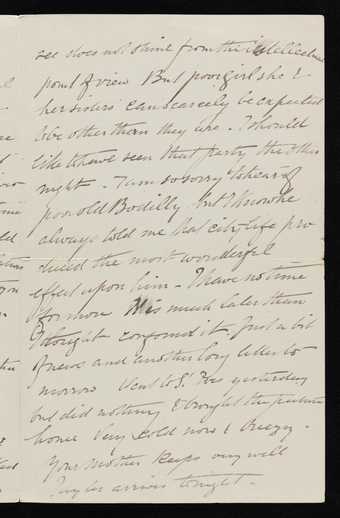 see does not shine from the intellectual
point of view But poor girl she &
her sisters can scarcely be expected
to be other than they are - I should
like to have seen that party the other
night - I am so sorry to hear of
poor old Bodilly but I know he
always told me that city life pro
duced the most wonderful
effect upon him - I have no time
for more It is much later than
I thought confound it Just a bit
of news and another long letter to
morrow I went to St. Ives yesterday
but did nothing & brought the picture
home Very cold now & breezy -
Your Mother keeps very well
arrives tonight -